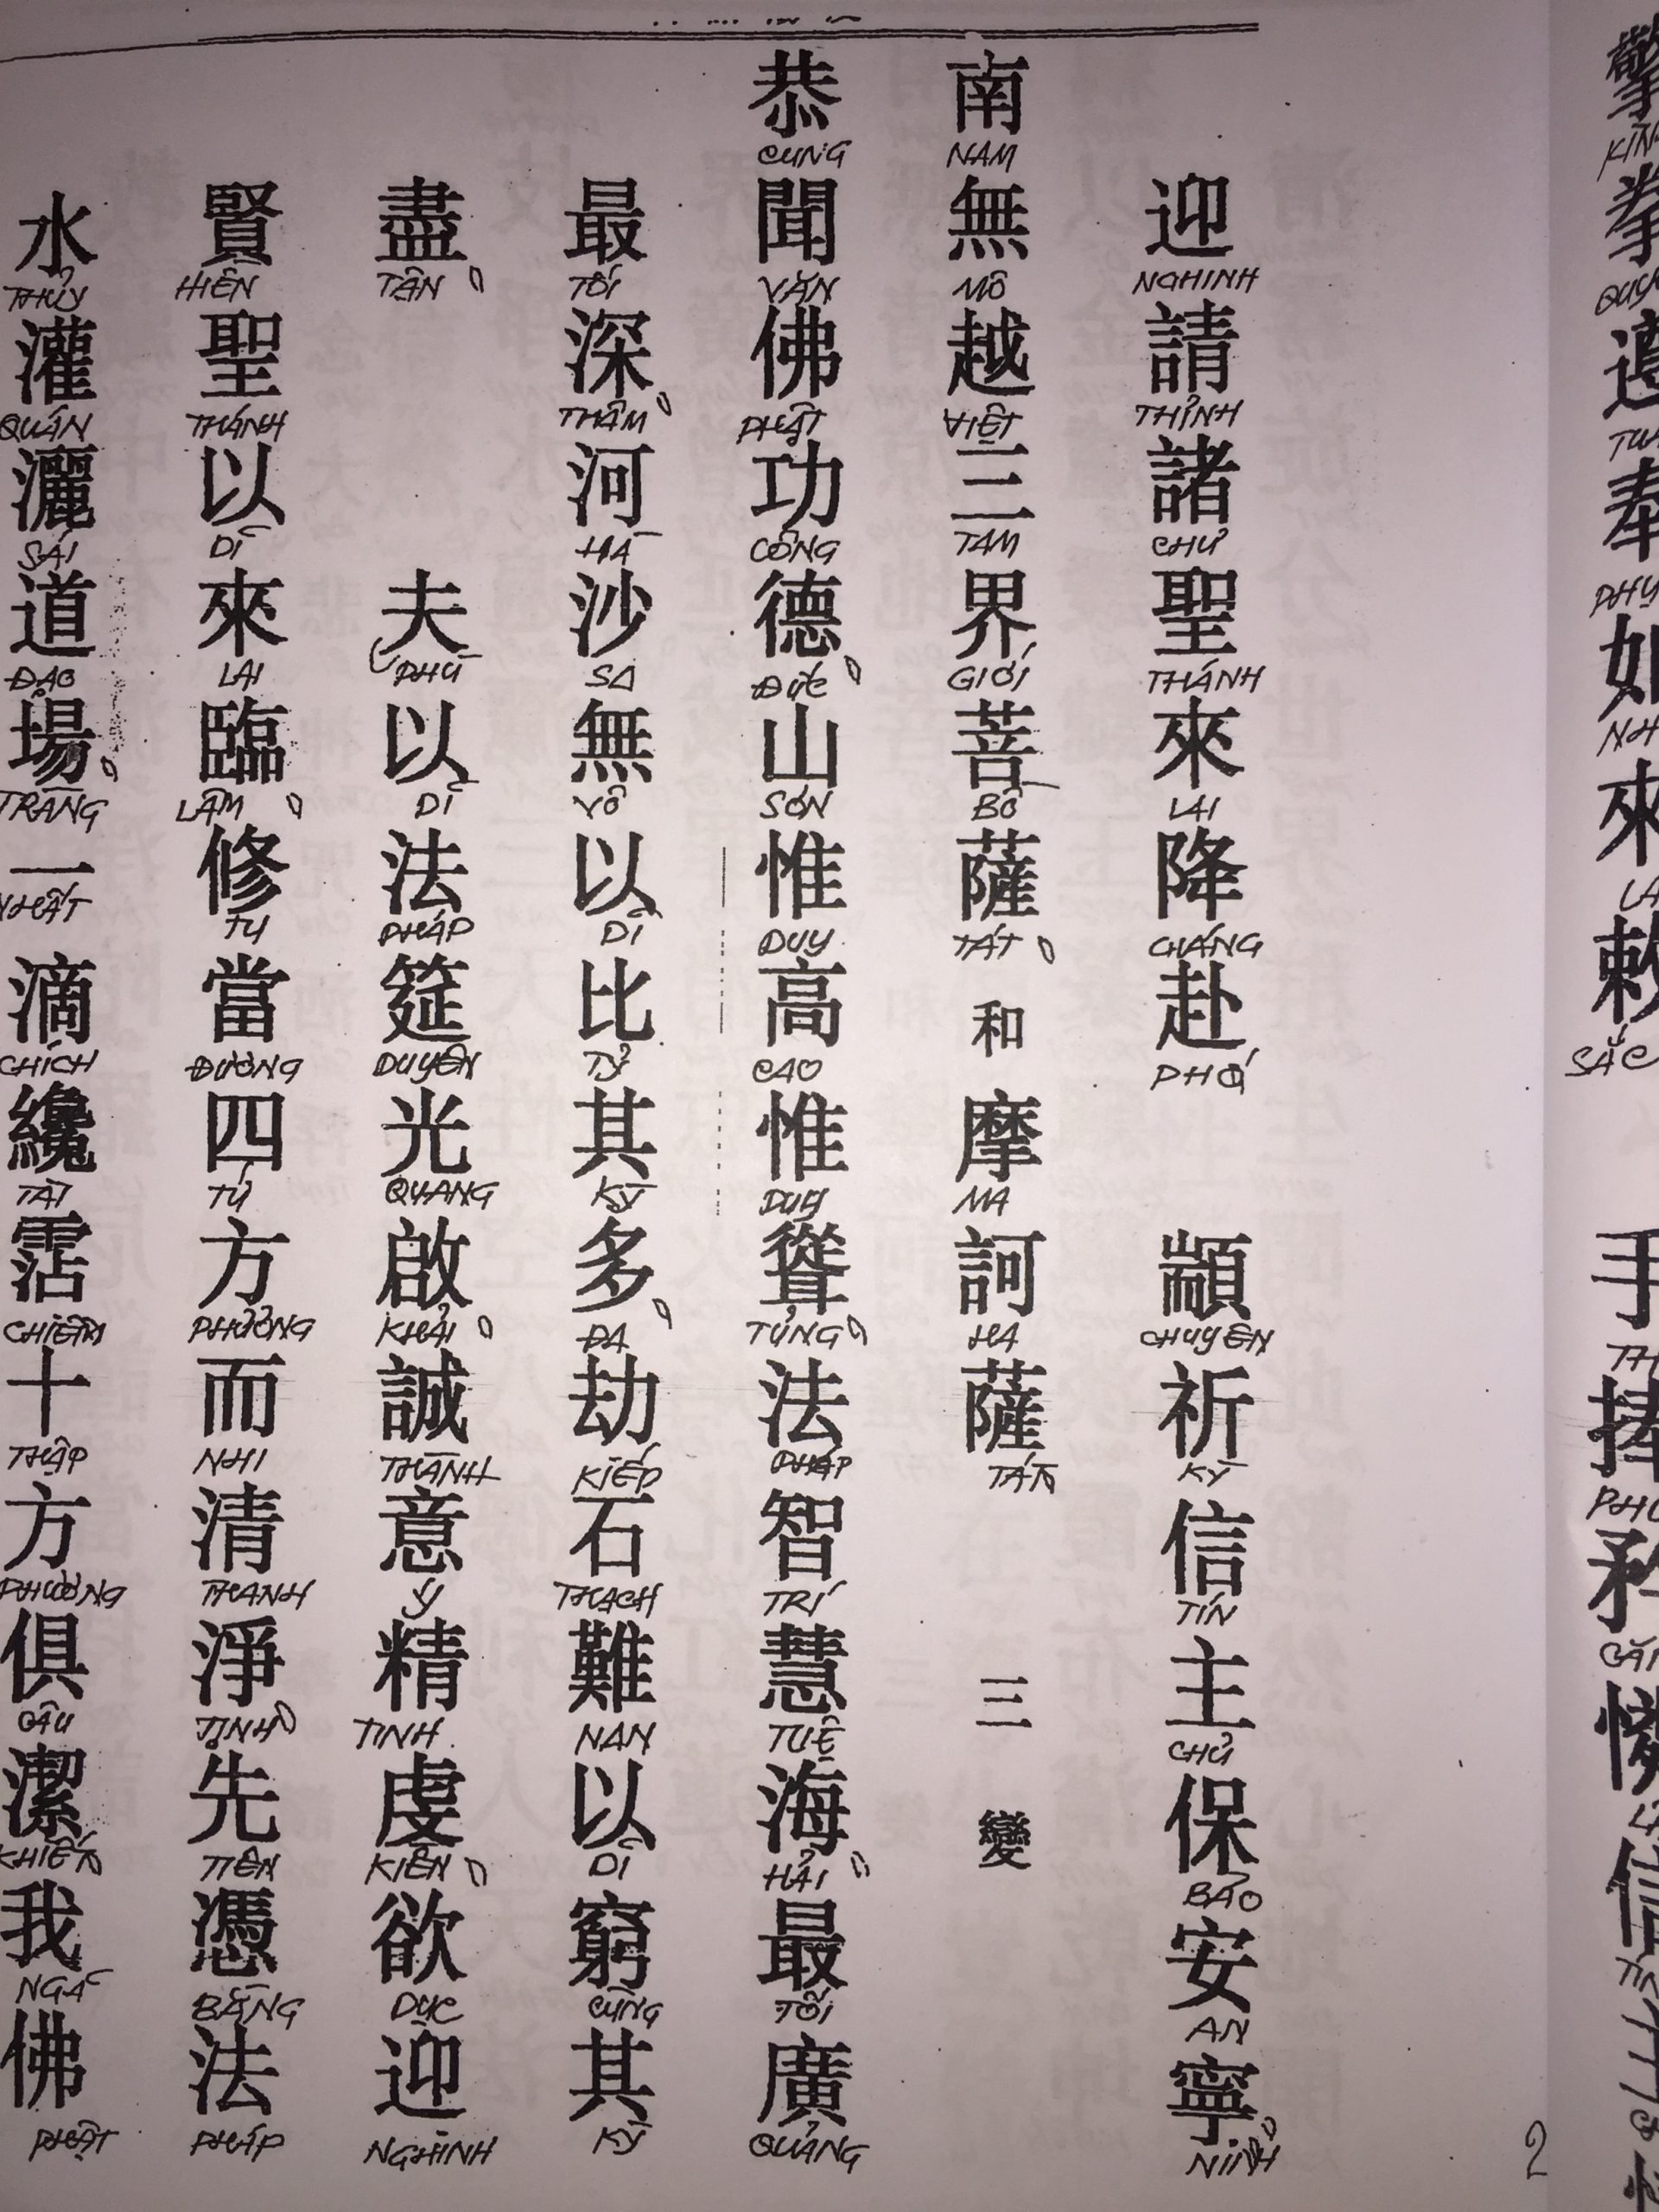 迎請諸聖來降赴 顓祈信主保安寧
NGHINH THỈNH CHƯ THÁNH LAI GIÁNG PHÓ CHUYÊN KỲ TÍN CHỦ BẢO AN NINH
南無越三界菩薩 和 摩訶薩 三變
NAM MÔ VIỆT TAM GIỚI BỒ TÁT MA HA TÁT
恭聞佛功德山惟高惟聳法智慧海最廣
CUNG VĂN PHẬT CÔNG ĐỨC SƠN DUY CAO DUY TỦNG PHÁP TRÍ TUỆ HẢI TỐI QUẢNG
最深河沙無以比其多劫石難以窮其
TỐI THÂM HÀ SA VÔ DĨ TỶ KỲ ĐA KIẾP THẠCH NAN DĨ CÙNG KỲ
盡 夫以法筵光啟誠意精虔欲迎
TẬN PHÙ DĨ PHÁP DUYÊN QUANG KHẢI THÀNH Ý TINH KIỀN DỤC NGHINH
賢聖以來臨修當四方而清淨先憑法
HIỀN THÁNH DĨ LAI LÂM TU ĐƯƠNG TỨ PHƯƠNG NHI THANH TỊNH TIÊN BẰNG PHÁP
水灌灑道場一滴纔霑十方俱潔我佛
THỦY QUÁN SÁI ĐẠO TRÀNG NHẤT CHÍCH TÀI CHIÊM THẬP PHƯƠNG CÂU KHIẾT NGÃ PHẬT
2